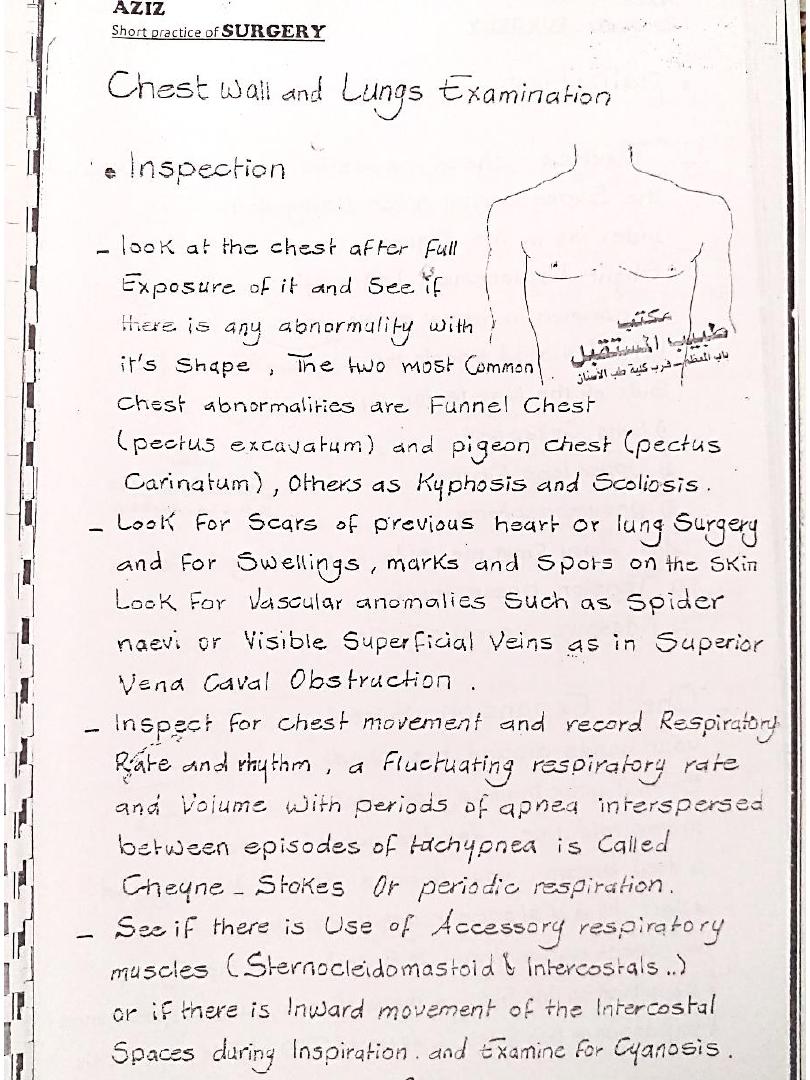 AZIZ
Short practice of SURGERY
Chest Wall and Lungs Examination
• Inspection
- look at the chest after full
Exposure of it and See if
there is any abnormality with
it's Shape , The two most Common
Chest abnormalities are Funnel Chest
(pectus excavatum) and pigeon chest (pectus
Carinatum) , Others as Kyphosis and Scoliosis .
- Look For Scars of previous heart or lung Surgery
and For Swellings , marks and Spots on the Skin
Look For Vascular anomalies Such as Spider
naevi or Visible Superficial Veins as in Superior
Vena Caval Obstruction .
- Inspect for chest movement and record Respiratory
Rate and rhythm , a Fluctuating respiratory rate
and Volume with periods of apnea interspersed
between episodes of tachypnea is Called
Cheyne - Stokes Or periodic respiration .
- See if there is Use of Accessory respiratory
muscles ( Sternocleidomastoid & Intercostals ..)
or if there is Inward movement of the Intercostal
Spaces during Inspiration . and Examine for Cyanosis .
مكتب
طبيب المستقبل
باب المعظم - قرب كلية طب الأسنان